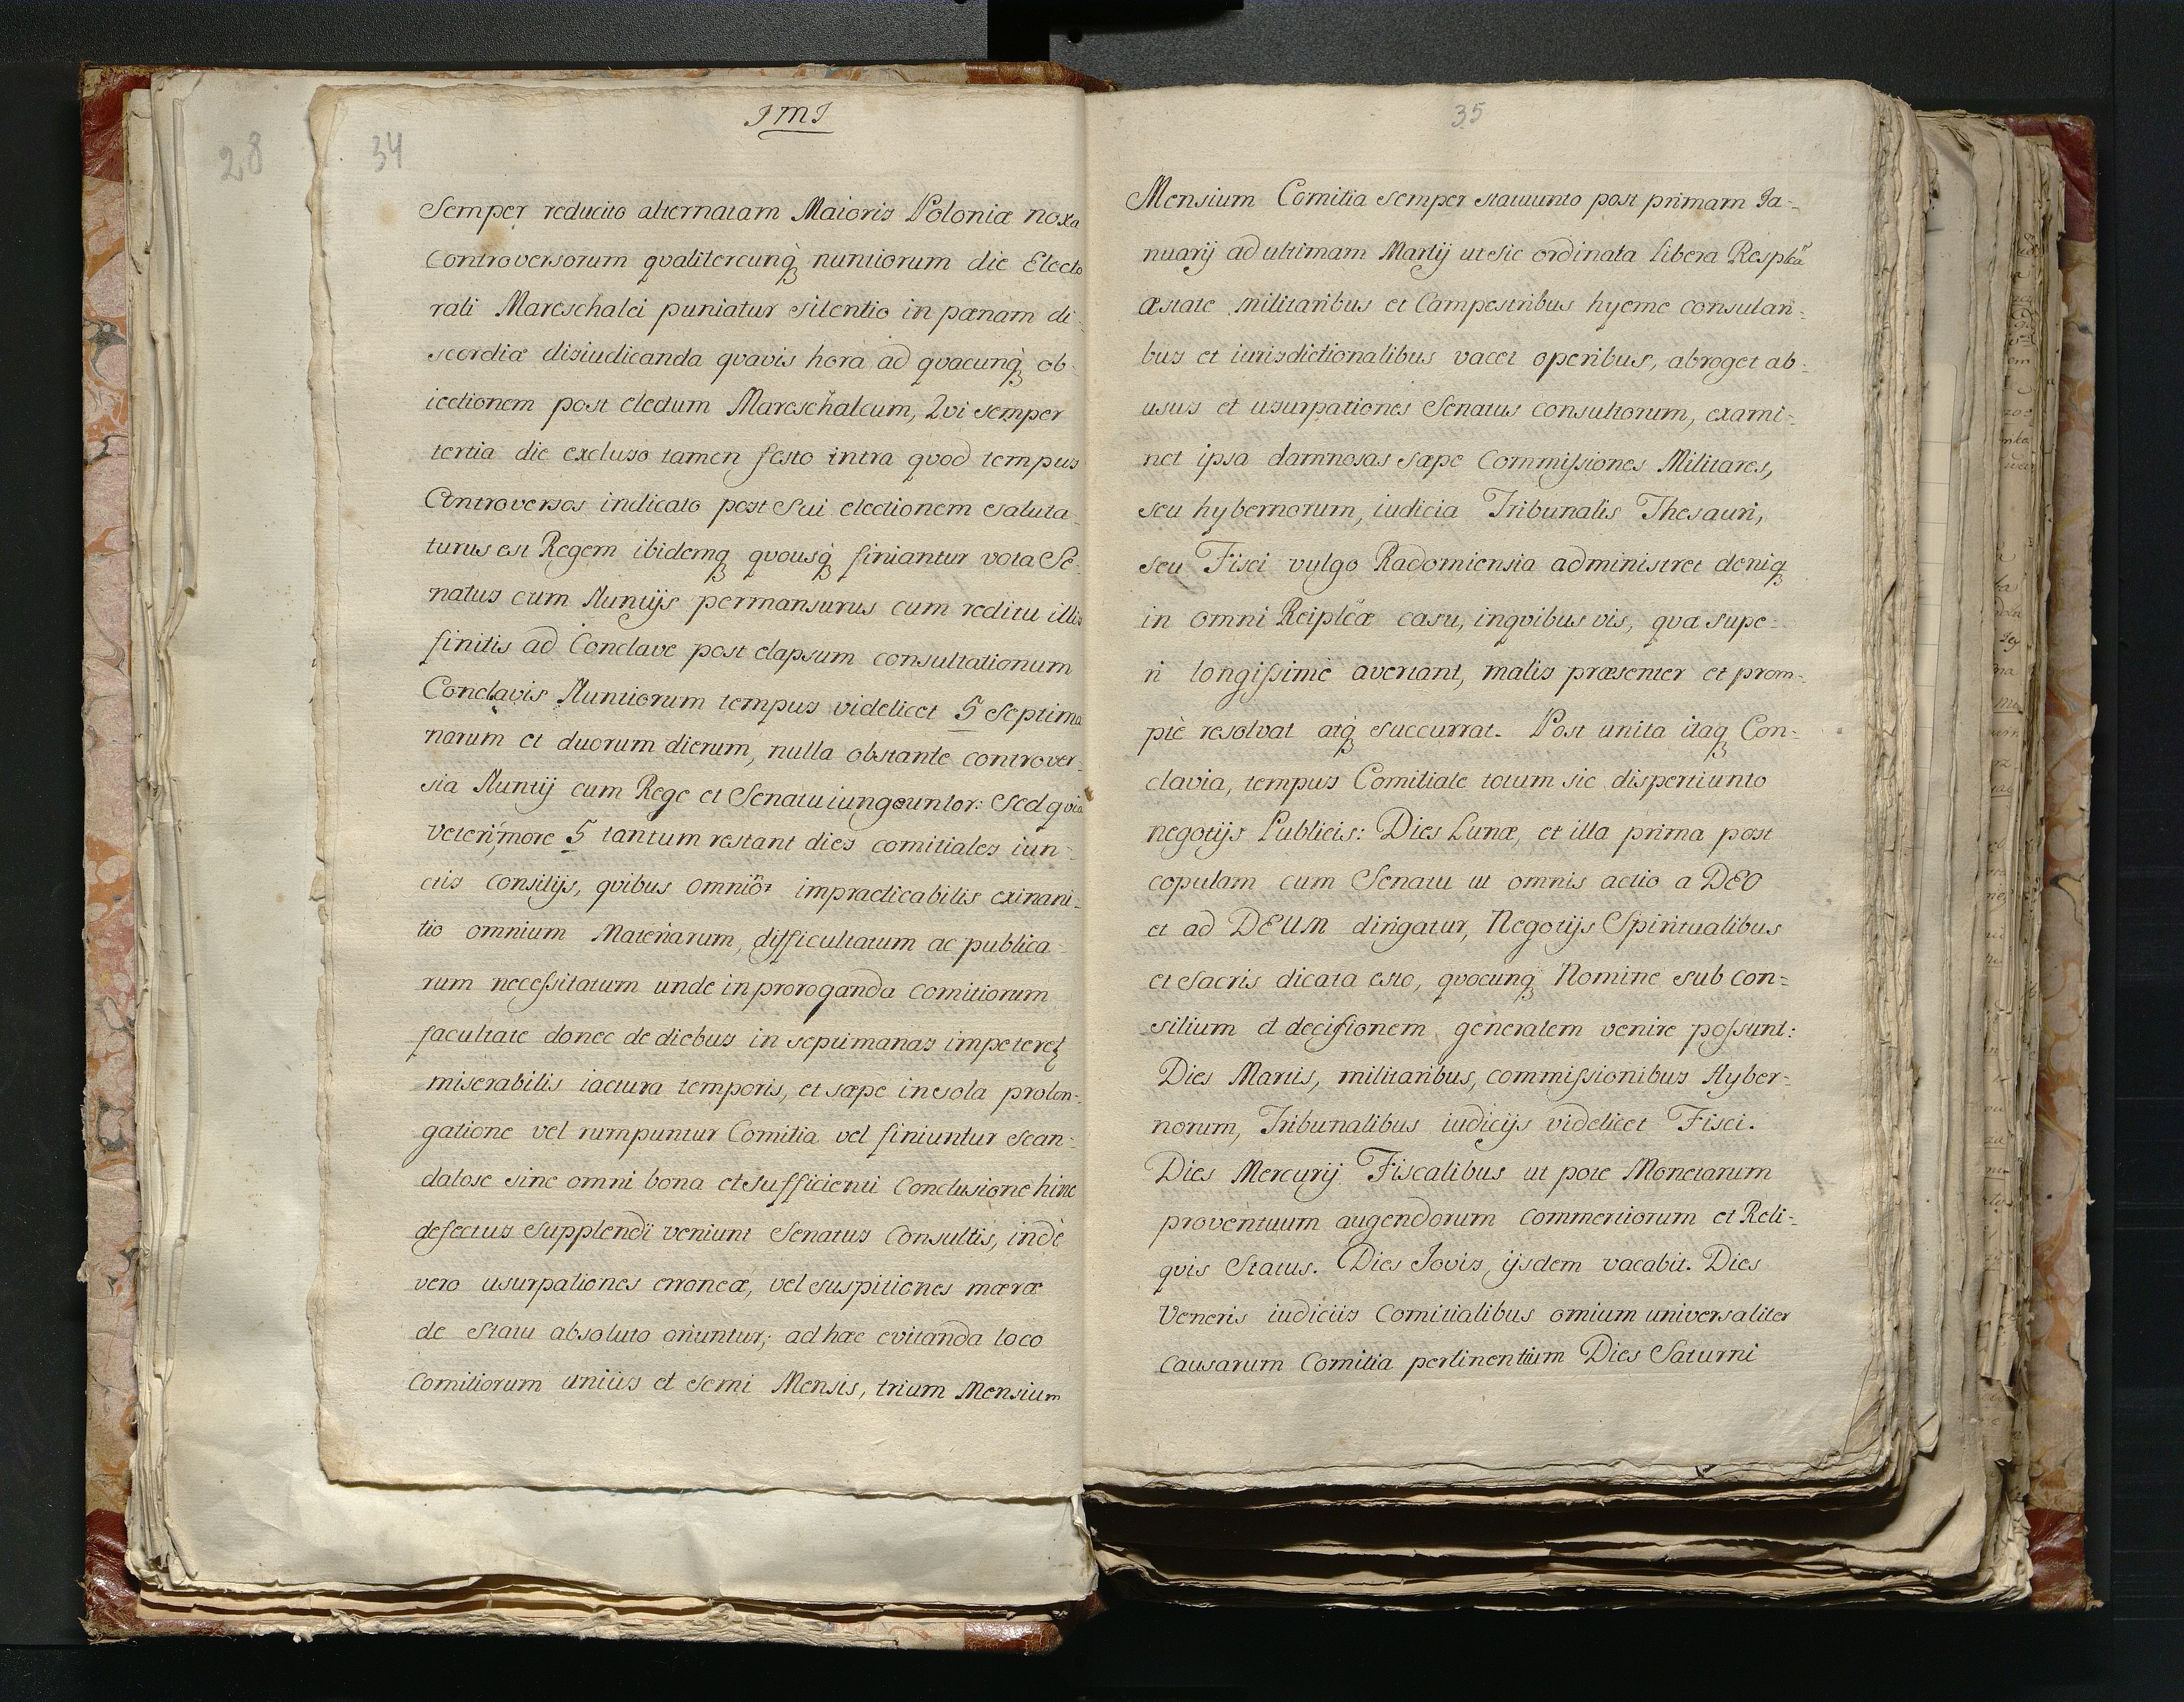 28
34
JMJ
Semper reducito alternatam Maioris Poloniæ noxa
Controversorum qvalitercunqꝫ nuntiorum die Electo
rali Mareschalci puniatur silentio in pœnam di-
scordiæ disiudicanda qvavis hora ad qvacunqꝫ ob-
iectionem post electum Mareschalcum, Qvi semper
tertia die excluso tamen festo intra qvod tempus
Controversos indicato post Sui electionem saluta-
turus est Regem ibidemqꝫ qvousqꝫ finiantur vota Se-
natus cum Nuntijs permansurus cum reditu illis
finitis ad Conclave post elapsum consultationum
Conclavis Nuntiorum tempus videlicet 5 Septima
narum et duorum dierum, nulla obstante controver-
sia Nuntij cum Rege et Senatu iunguntor: Sed qvia
veteri more 5 tantum restant dies comitiales iun-
ctis consilijs, qvibus omnĩõr impracticabilis exinani-
tio omnium Materiarum, difficultatum ac publica-
rum necessitatum unde in proroganda comitiorum
facultate donec de diebus in septimanas impeteretꝫ
miserabilis iactura temporis, et sæpe in sola prolon-
gatione vel rumpuntur Comitia vel finiuntur scan-
dalose sine omni bona et sufficienti Conclusione hinc
defectus supplendi veniunt Senatus Consultis, indè
vero usurpationes erroneæ, vel suspitiones mæræ
de statu absoluto oriuntur; ad hæc evitanda loco
Comitiorum unius et semi Mensis, trium Mensium
35
Mensium Comitia semper statuunto post primam Ja-
nuarij ad ultimam Martij ut sic ordinata libera Respĺca
æstate militaribus et Campestribus hyeme consulari-
bus et iurisdictionalibus vacet operibus, abroget ab-
usus et usurpationes Senatus consultorum, exami-
net ipsa damnosas sæpe Commissiones Militares,
seu hybernorum, iudicia Tribunalis Thesauri,
seu Fisci vulgo Radomiensia administret deniqꝫ
in omni Reiplcæ casu, inqvibus vis, qvæ supe-
ri longissimè avertant, malis præsenter et prom-
ptè resolvat atqꝫ succurrat. Post unita itaqꝫ Con-
clavia, tempus Comitiale totum sic dispertiunto
negotijs Publicis: Dies Lunæ, et illa prima post
copulam cum Senatu ut omnis actio a DEO
et ad DEUM dirigatur, Negotijs Spiritualibus
et sacris dicata esto, qvocunqꝫ Nomine sub con-
silium et decisionem generalem venire possunt:
Dies Martis, militaribus, commissionibus Hyber-
norum, Tribunalibus iudicijs videlicet Fisci.
Dies Mercurij Fiscalibus ut pote Monetarum
proventuum augendorum commertiorum et Reli-
qvis Status. Dies Jovis, ijsdem vacabit. Dies
Veneris iudiciis Comitialibus omium universaliter
causarum Comitia pertinentium Dies Saturni